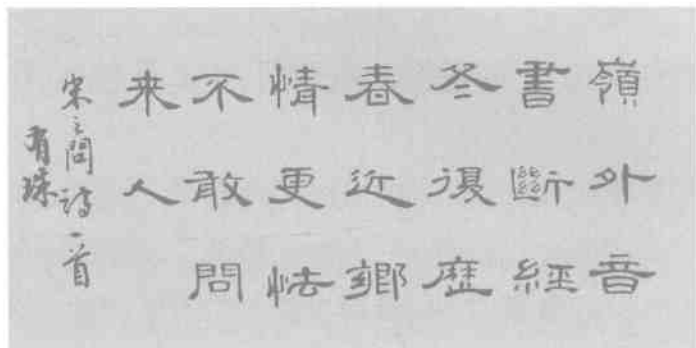 嶺外音
書斷經
冬復歷
春近鄉
情更怯
不敢問
来人
宋之問詩一首
有珠